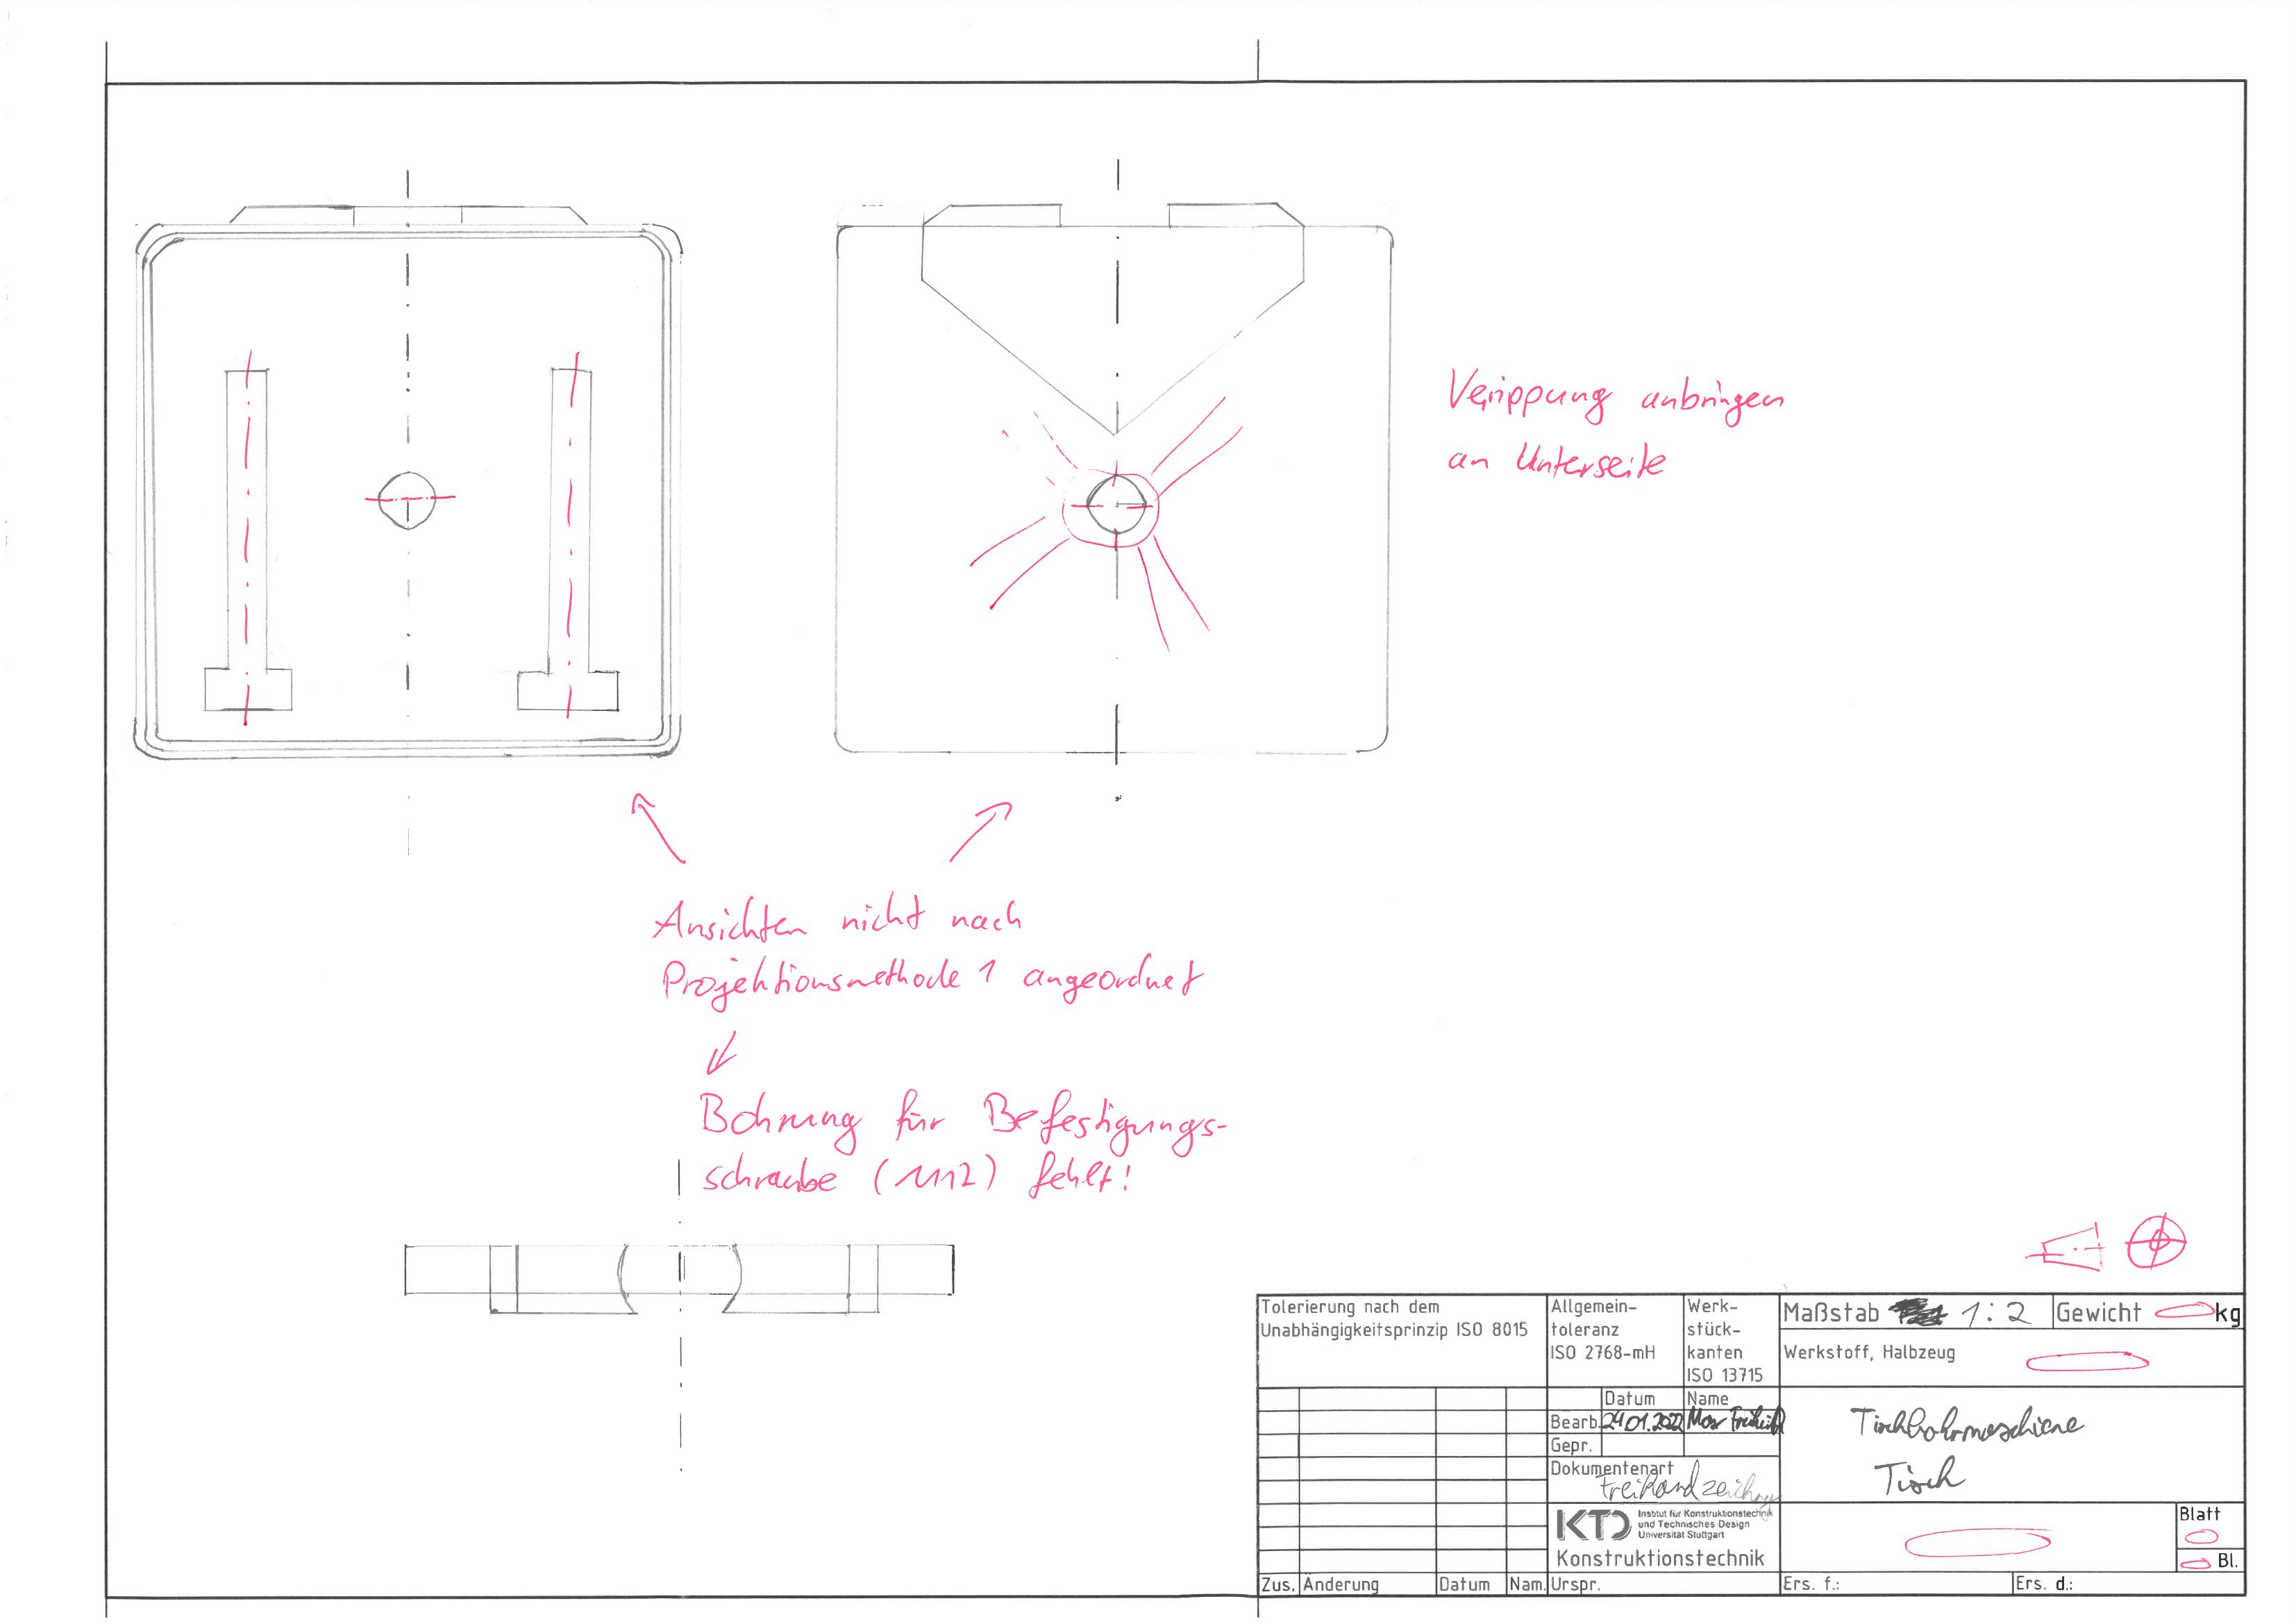 Verrippung anbringen
an Unterseite
Ansichten nicht nach
Projektionsmethode 1 angeordnet
Bohrung für Befestigungs-
schraube (M12) fehlt!
Tolerierung nach dem
Unabhängigkeitsprinzip ISO 8015
Allgemein-
toleranz
ISO 2768-mH
Werk-
stück-
kanten
ISO 13715
Maßstab 1:2
Gewicht kg
Werkstoff, Halbzeug
Datum Name
Bearb. 24.01.2022
Gepr.
Tischbohrmaschiene
Tisch
Dokumentenart
Freihandzeichnung
KTD Institut für Konstruktionstechnik
und Technisches Design
Universität Stuttgart
Konstruktionstechnik
Blatt
Bl.
Zus. Änderung Datum Nam. Urspr. Ers. f.: Ers. d.: